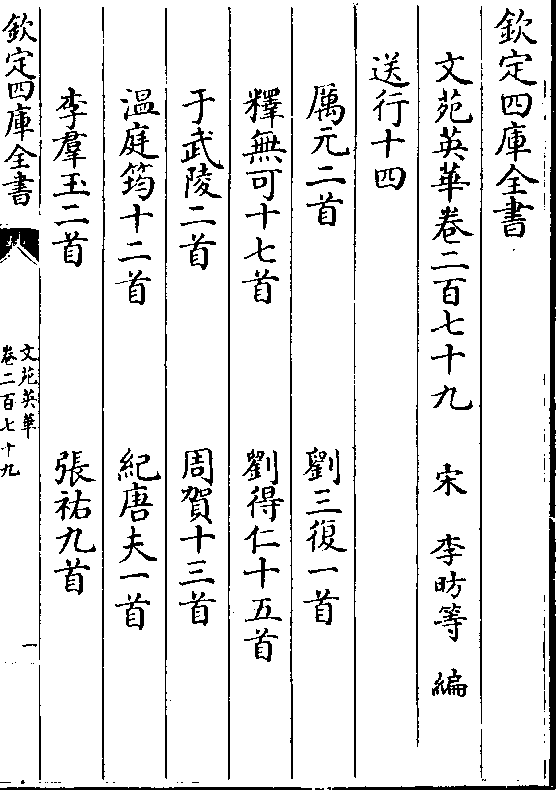 欽定四庫全書
文苑英華卷二百七十九 宋 李昉等 編
送行十四
厲元二首 劉三復一首
釋無可十七首 劉得仁十五首
于武陵二首 周賀十三首
温庭筠十二首 紀唐夫一首
李羣玉二首 張祐九首
欽定四庫全書
文苑英華
卷二百七十九
一